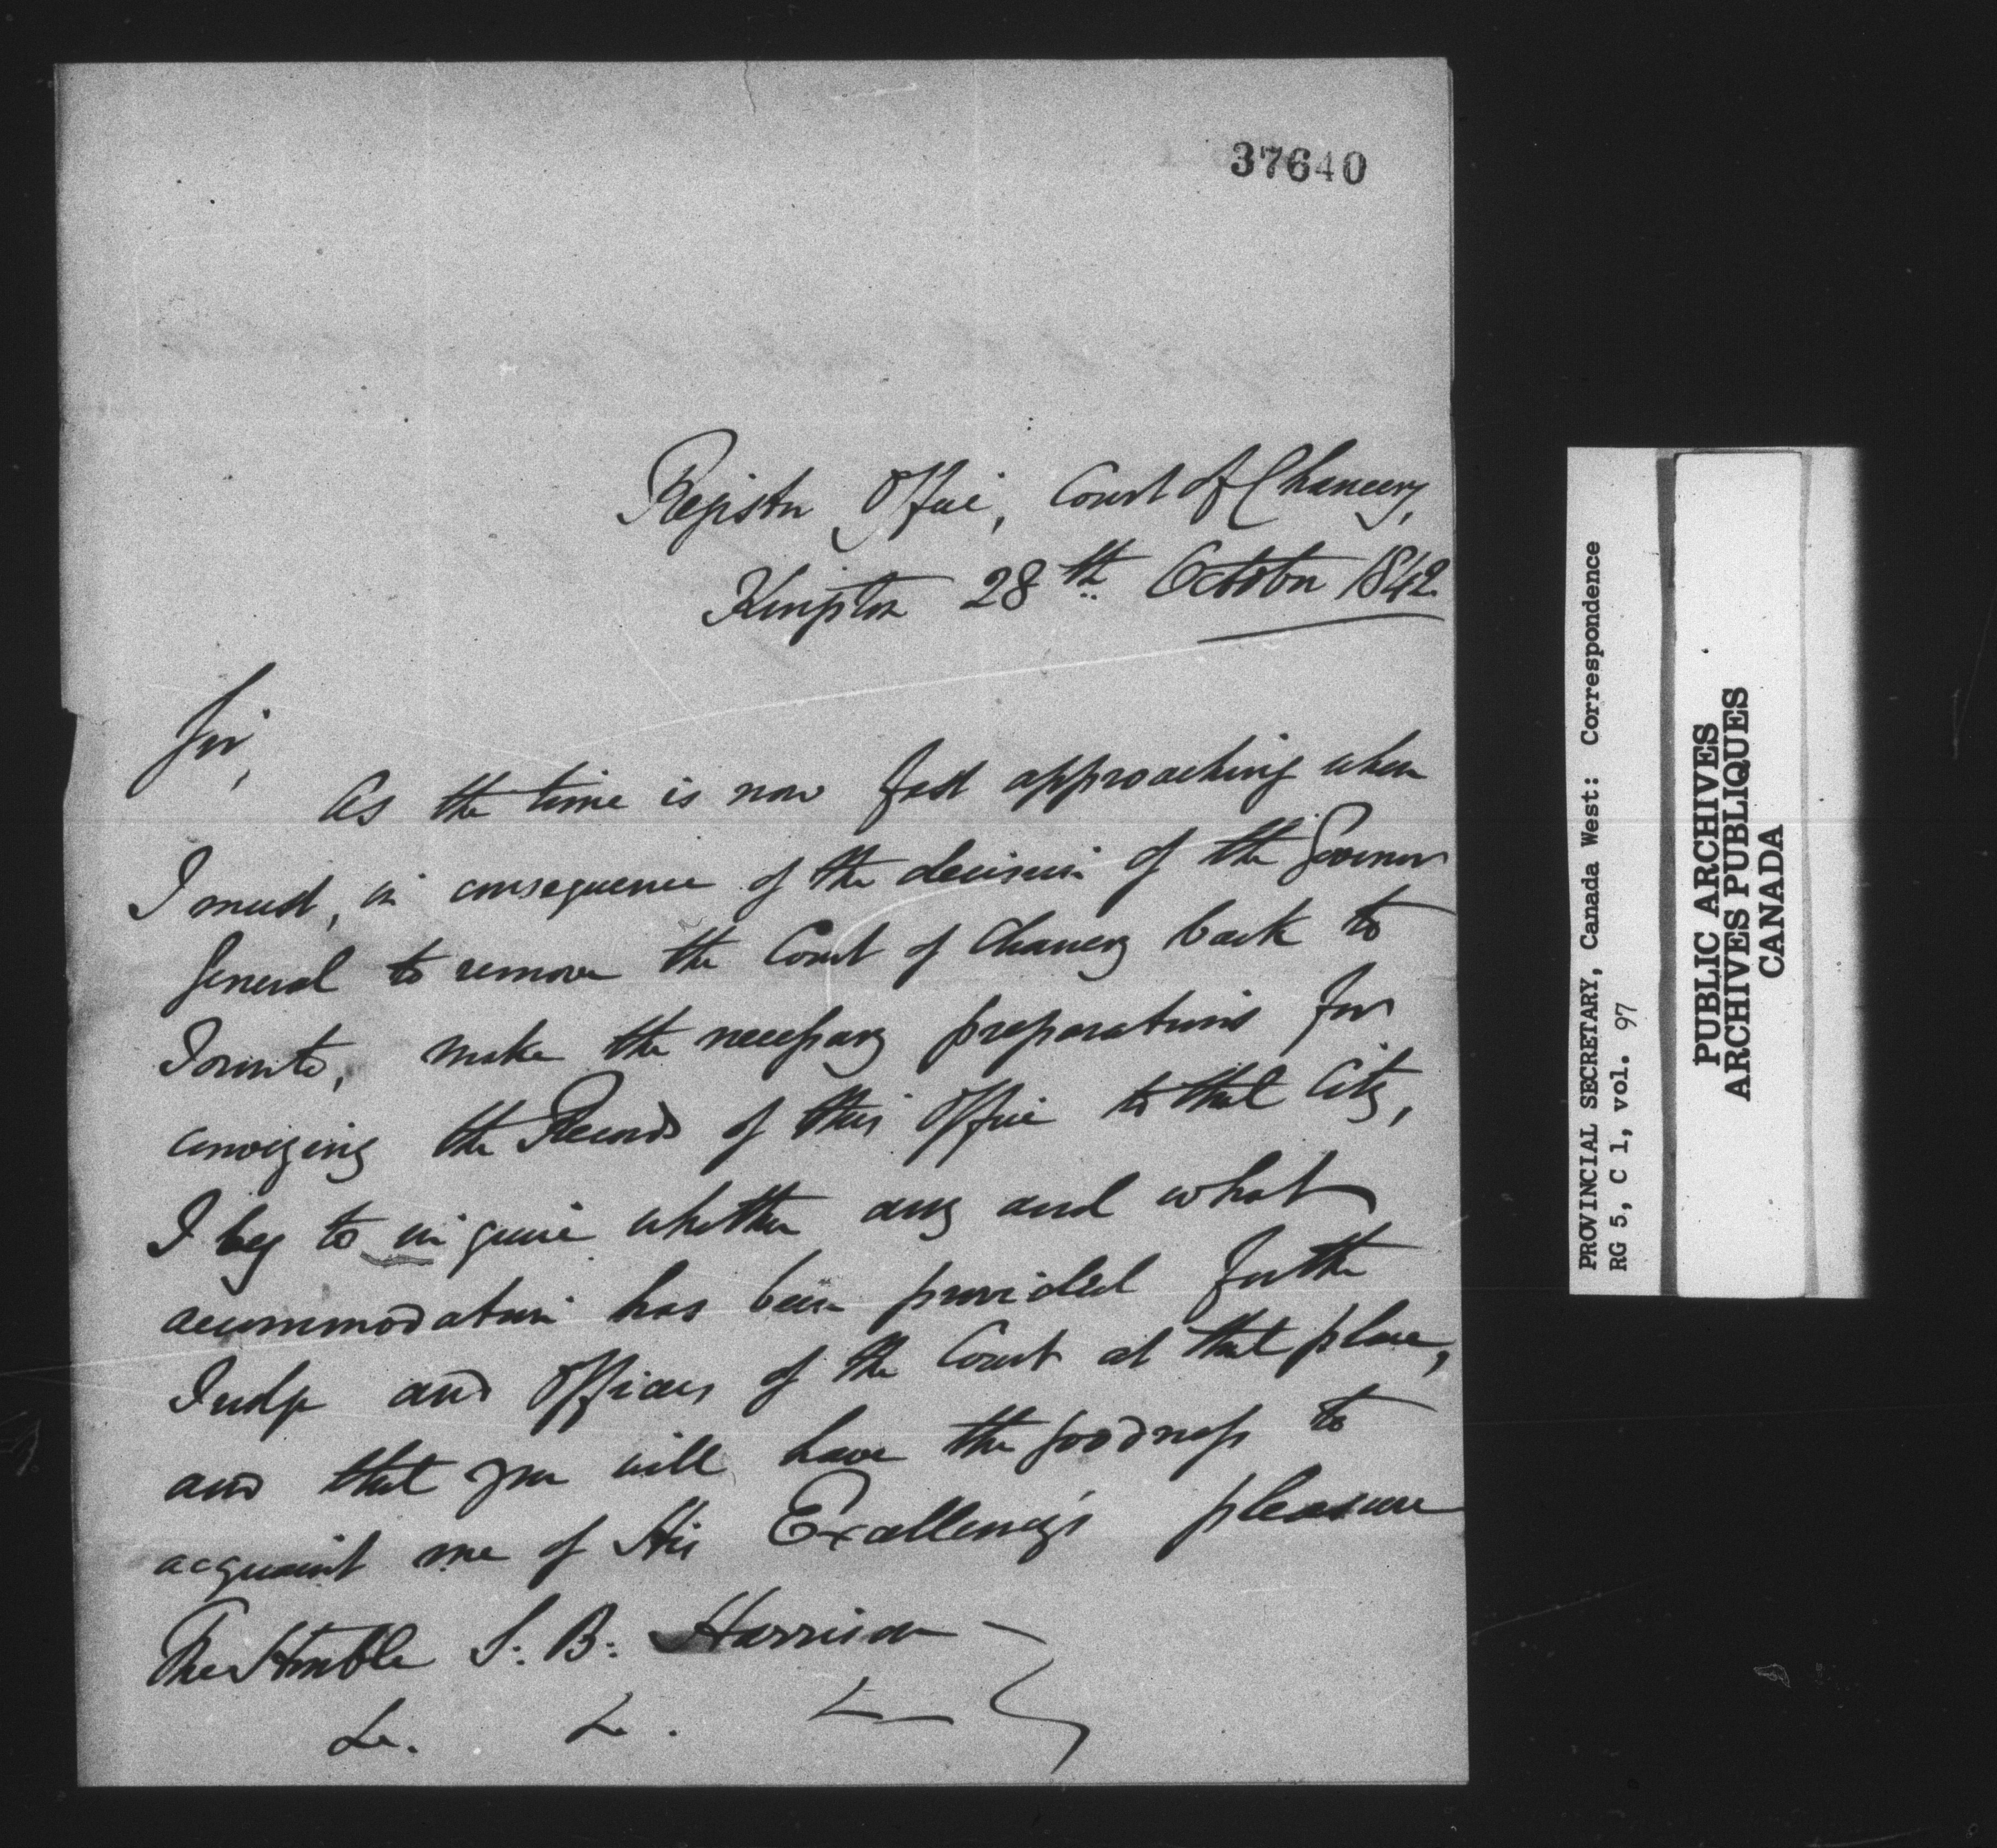 37640
Register Office, Court of Chancery,
Kingston 28th October 1842
Sir,
As the time is now fast approaching when
I must, in consequence of the decision of the Governor
General to remove the Court of Chancery back to
Toronto, make the necessary preparations for
conveying the Records of this Office to that City,
I beg to inquire whether any and what
accommodation has been provided for the
Judge and Officers of the Court at that place,
and that you will have the goodness to
acquaint me of His Excellency's pleasure
The Honble S. B. Harrison
&c. &c. &c.
PROVINCIAL SECRETARY, Canada West: Correspondence
RG 5, C 1, vol. 97
PUBLIC ARCHIVES
ARCHIVES PUBLIQUES
CANADA